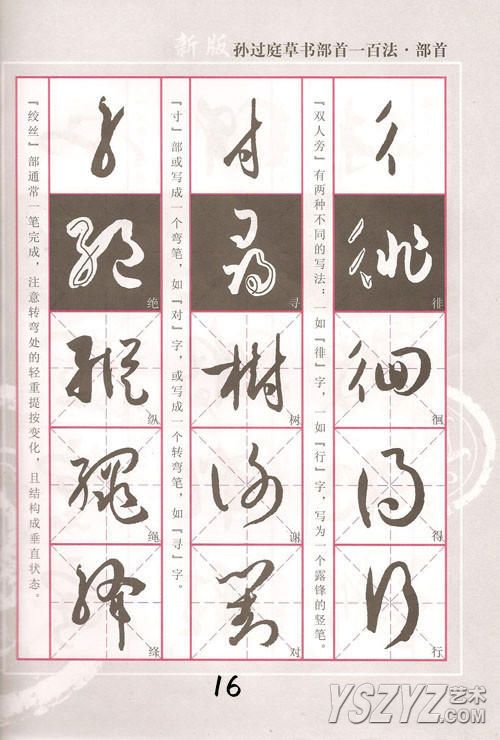 新版 孙过庭草书部首一百法·部首
『双人旁』有两种不同的写法：一如『徘』字，一如『行』字，写为一个露锋的竖笔。
彳
徘
徊
得
行
『寸』部或写成一个弯笔，如『对』字，或写成一个转弯笔，如『寻』字。
寸
寻
树
谢
对
『绞丝』部通常一笔完成，注意转弯处的轻重提按变化，且结构成垂直状态。
纟
绝
纵
绳
绛
16
YSZYZ艺术
.COM